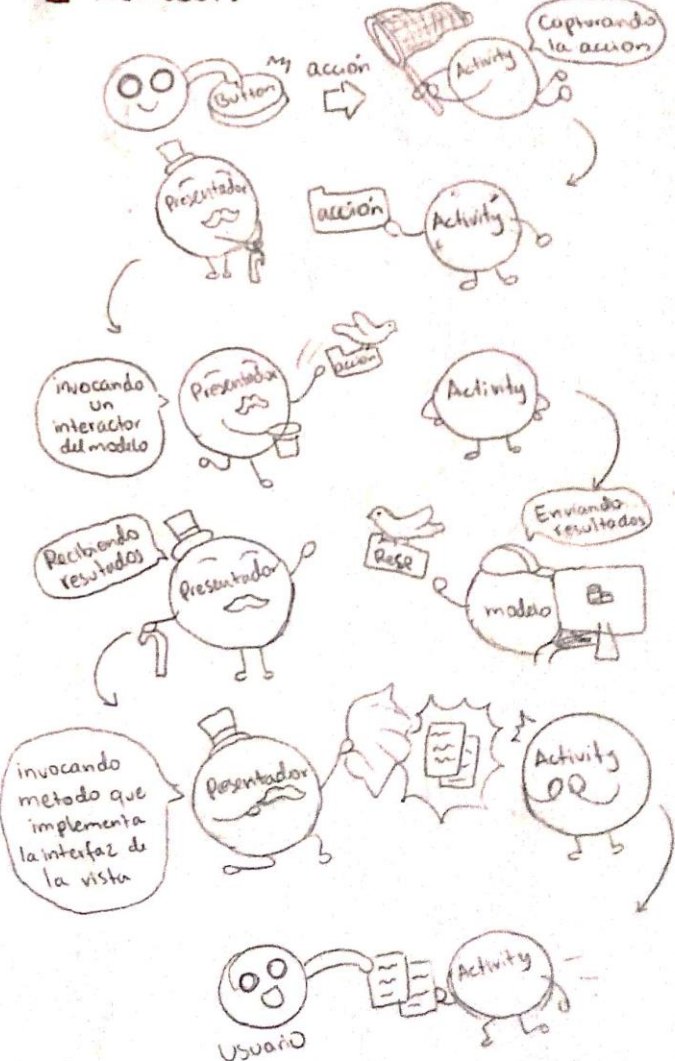 Button
acción
Activity
Capturando
la acción
Presentador
acción
Activity
invocando
un
interactor
del modelo
Presentador
acción
Activity
Recibiendo
resutados
Presentador
Rese
Enviando
resultados
modelo
invocando
metodo que
implementa
la interfaz de
la vista
Presentador
Activity
Usuario
Activity